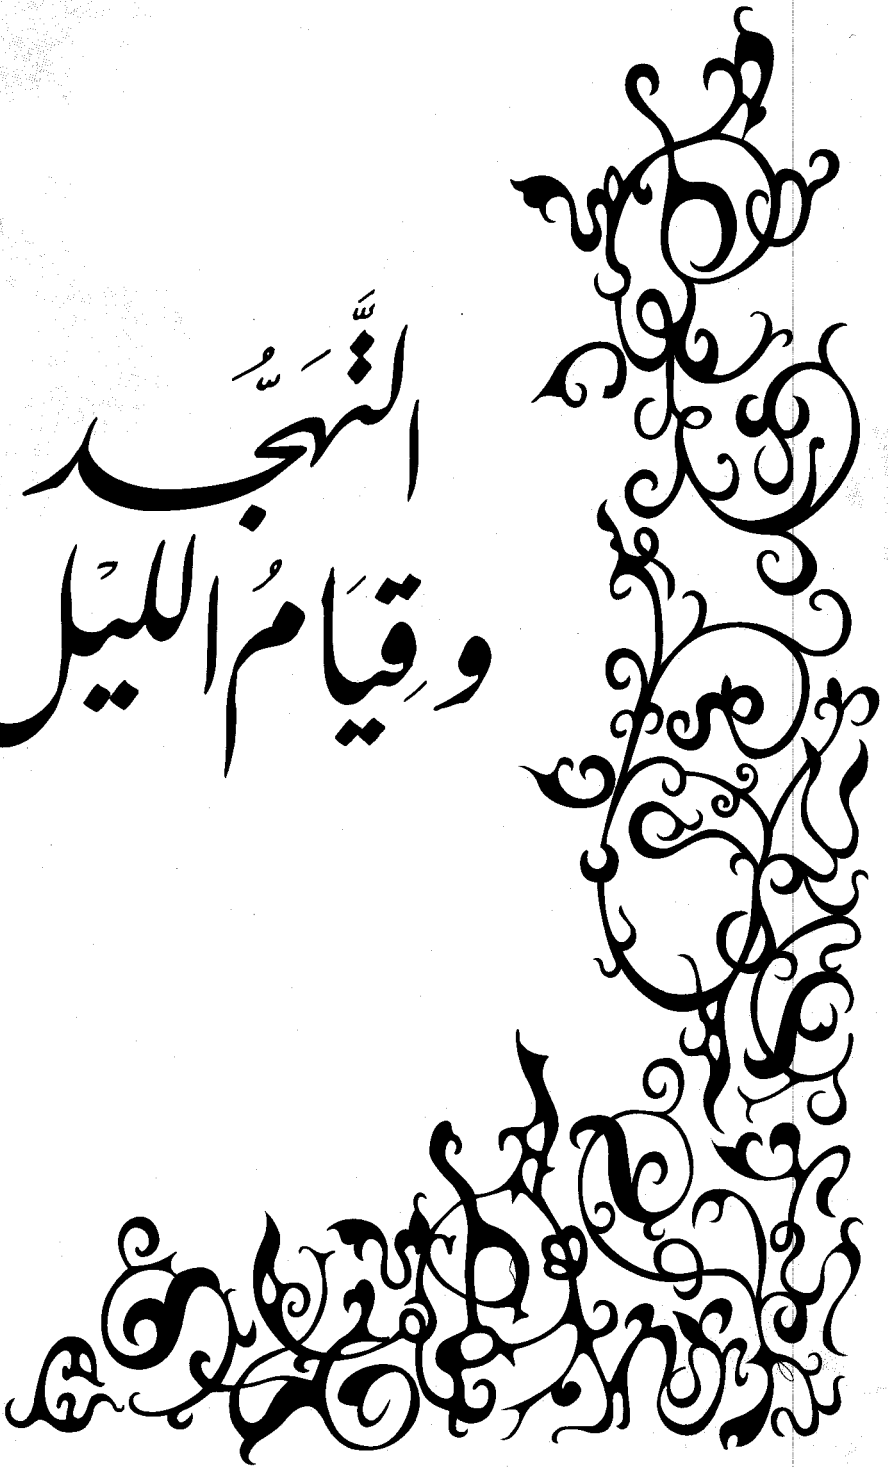 التَّهَجُّد
وقِيَامُ الليْل